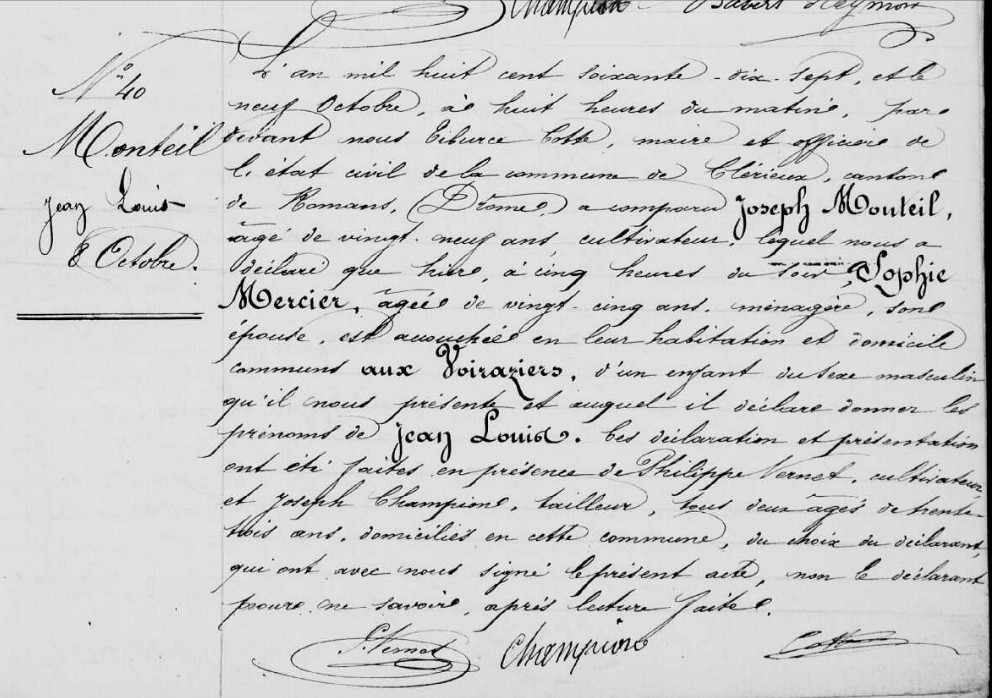 Champion Babert Reymond
N° 40
Monteil
Jean Louis
8 Octobre.
L'an mil huit cent soixante-dix-sept, et le
neuf Octobre, à huit heures du matin, par
devant nous Tiburce Cotte, maire et officier de
l'état civil de la commune de Clérieux, canton
de Romans, (Drôme) a comparu Joseph Monteil,
âgé de vingt-neuf ans cultivateur, lequel nous a
déclaré que hier, à cinq heures du soir, Sophie
Mercier, âgée de vingt-cinq ans, ménagère, son
épouse, est accouchée en leur habitation et domicile
communs aux Voiraziers, d'un enfant du sexe masculin
qu'il nous présente et auquel il déclare donner les
prénoms de Jean Louis. Ces déclaration et présentation
ont été faites en présence de Philippe Vernet, cultivateur,
et Joseph Champion, tailleur, tous deux âgés de trente-
trois ans, domiciliés en cette commune, du choix du déclarant,
qui ont avec nous signé le présent acte, non le déclarant
pour ne savoir, après lecture faite.
P. Vernet Champion Cotte